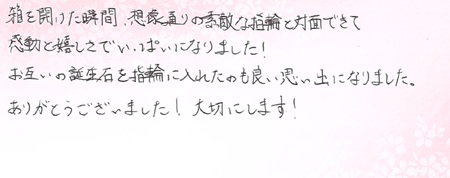 箱を開けた瞬間、想像通りの素敵な指輪と対面できて
感動と嬉しさでいっぱいになりました!
お互いの誕生石を指輪に入れたのも良い思い出になりました。
ありがとうございました! 大切にします!